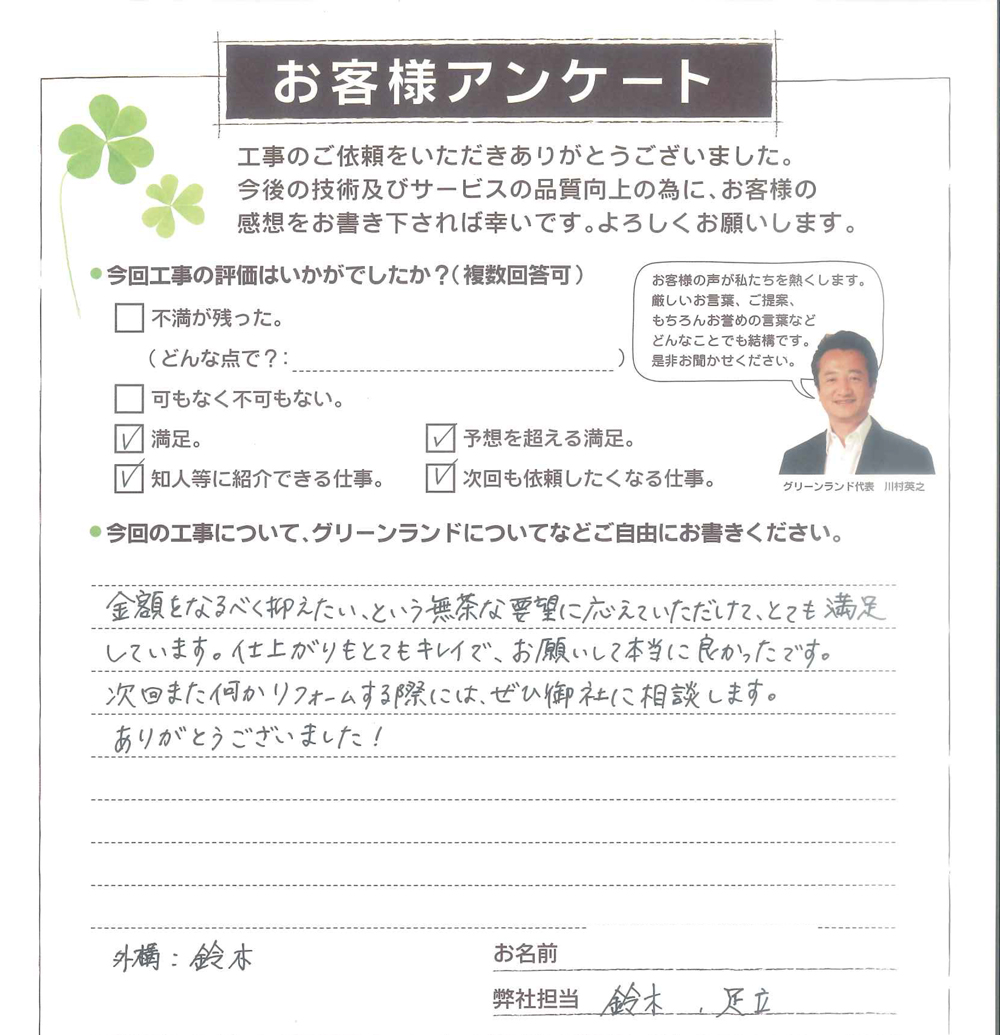 お客様アンケート
工事のご依頼をいただきありがとうございました。
今後の技術及びサービスの品質向上の為に、お客様の
感想をお書き下されば幸いです。よろしくお願いします。
今回工事の評価はいかがでしたか？（複数回答可）
不満が残った。
（どんな点で？：　）
可もなく不可もない。
満足。　予想を超える満足。
知人等に紹介できる仕事。　次回も依頼したくなる仕事。
お客様の声が私たちを熱くします。
厳しいお言葉、ご提案、
もちろんお誉めの言葉など
どんなことでも結構です。
是非お聞かせください。
グリーンランド代表　川村英之
今回の工事について、グリーンランドについてなどご自由にお書きください。
金額をなるべく抑えたい、という無茶な要望に応えていただけて、とても満足
しています。仕上がりもとてもキレイで、お願いして本当に良かったです。
次回また何かリフォームする際には、ぜひ御社に相談します。
ありがとうございました！
外構：鈴木
お名前
弊社担当　鈴木、足立